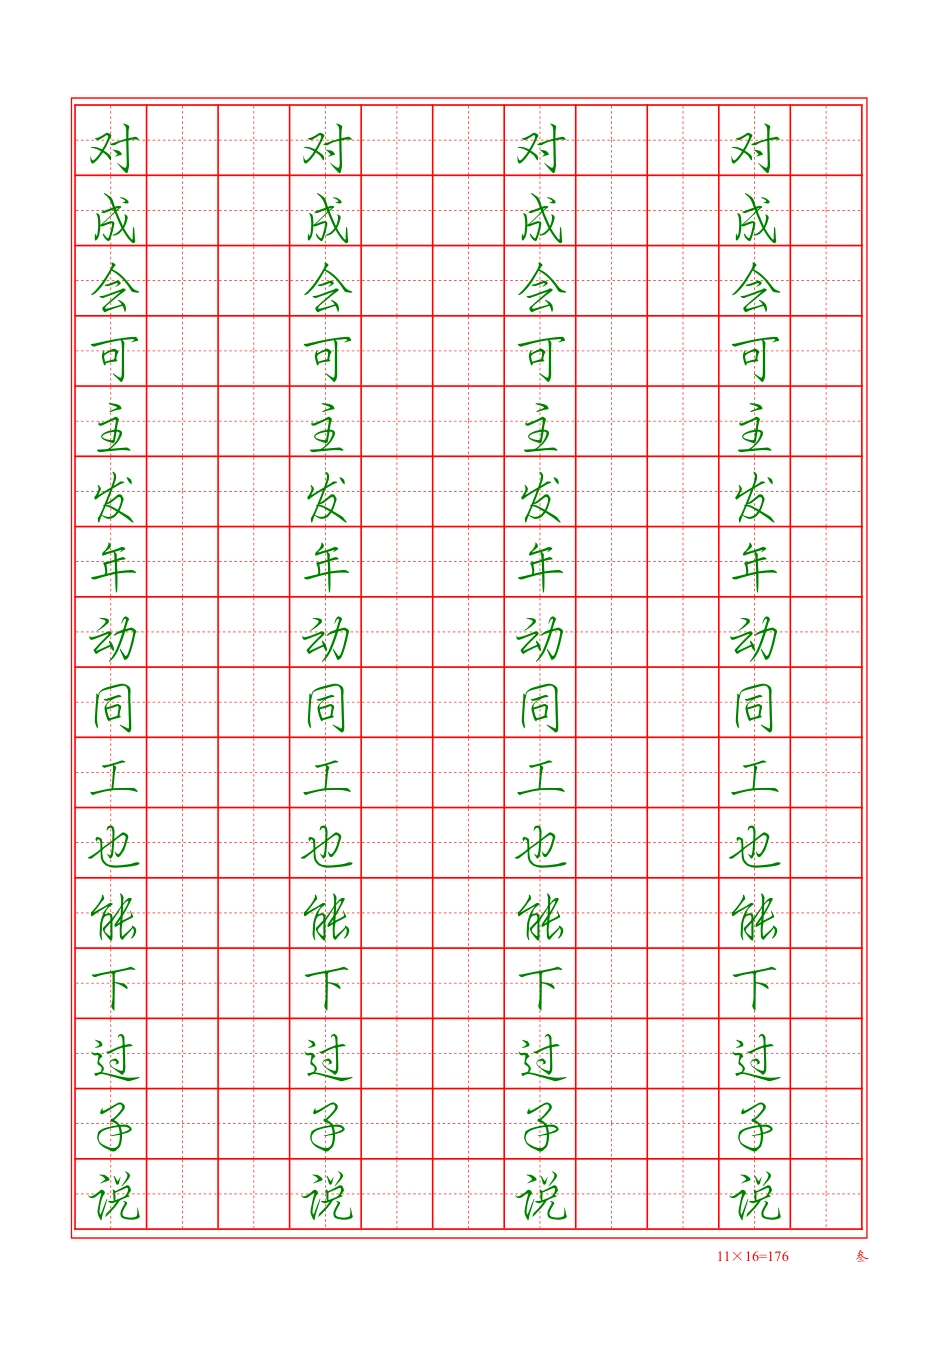 对 对 对 对
成 成 成 成
会 会 会 会
可 可 可 可
主 主 主 主
发 发 发 发
年 年 年 年
动 动 动 动
同 同 同 同
工 工 工 工
也 也 也 也
能 能 能 能
下 下 下 下
过 过 过 过
子 子 子 子
说 说 说 说
11×16=176 叁